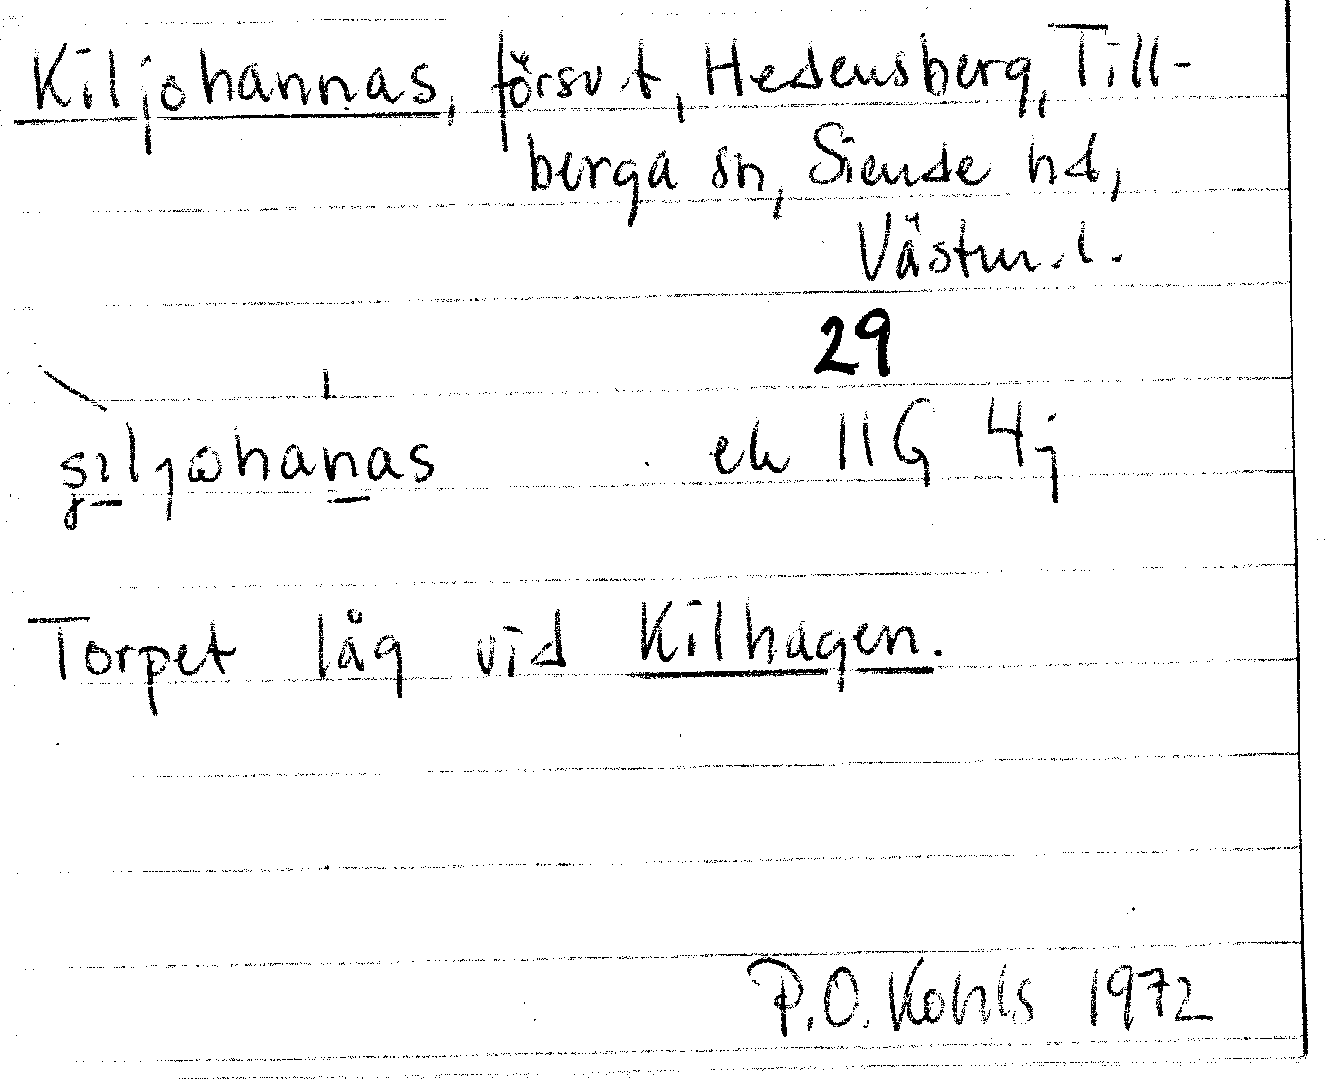 Kiljohannas, försv t, Hedensberg, Till-
berga sn, Siende hd,
Västm.l.
29
ek 11G 4j
Torpet låg vid Kilhagen.
P.O. Kohls 1972